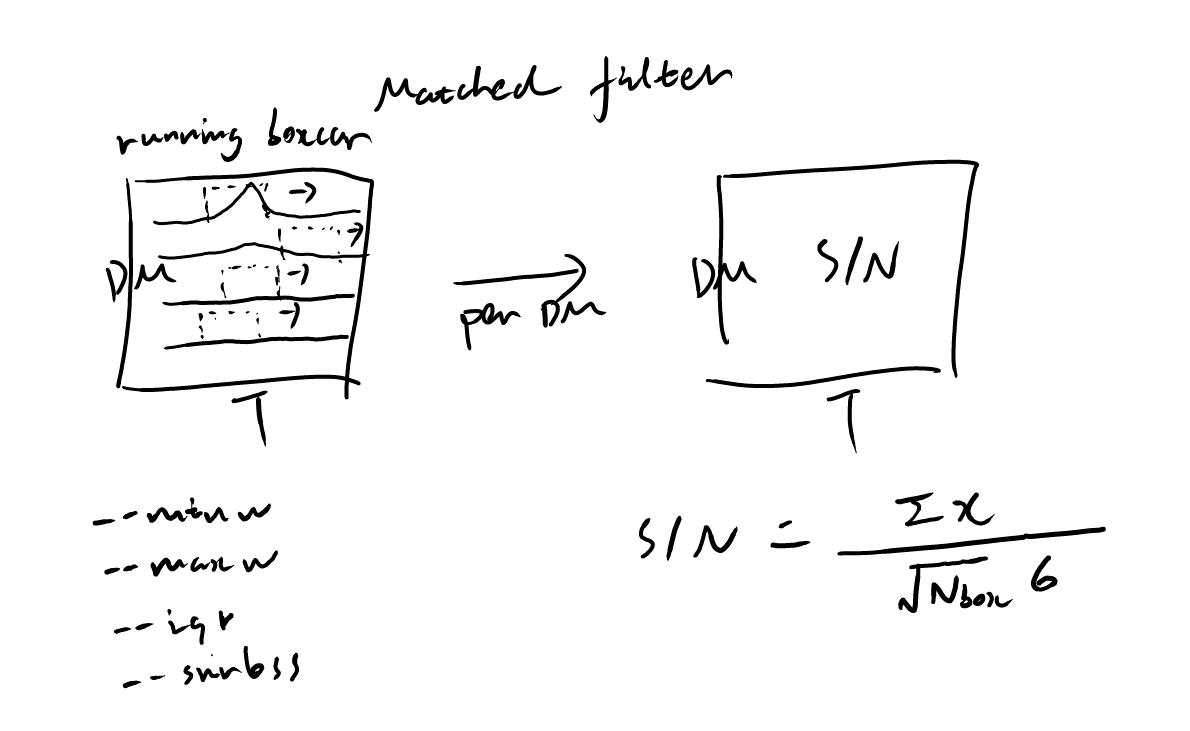 Matched filter
running boxcar
DM
T
per DM
DM
S/N
T
--minw
--maxw
--iqr
--snrbss
S/N = Σx / √Nbox σ